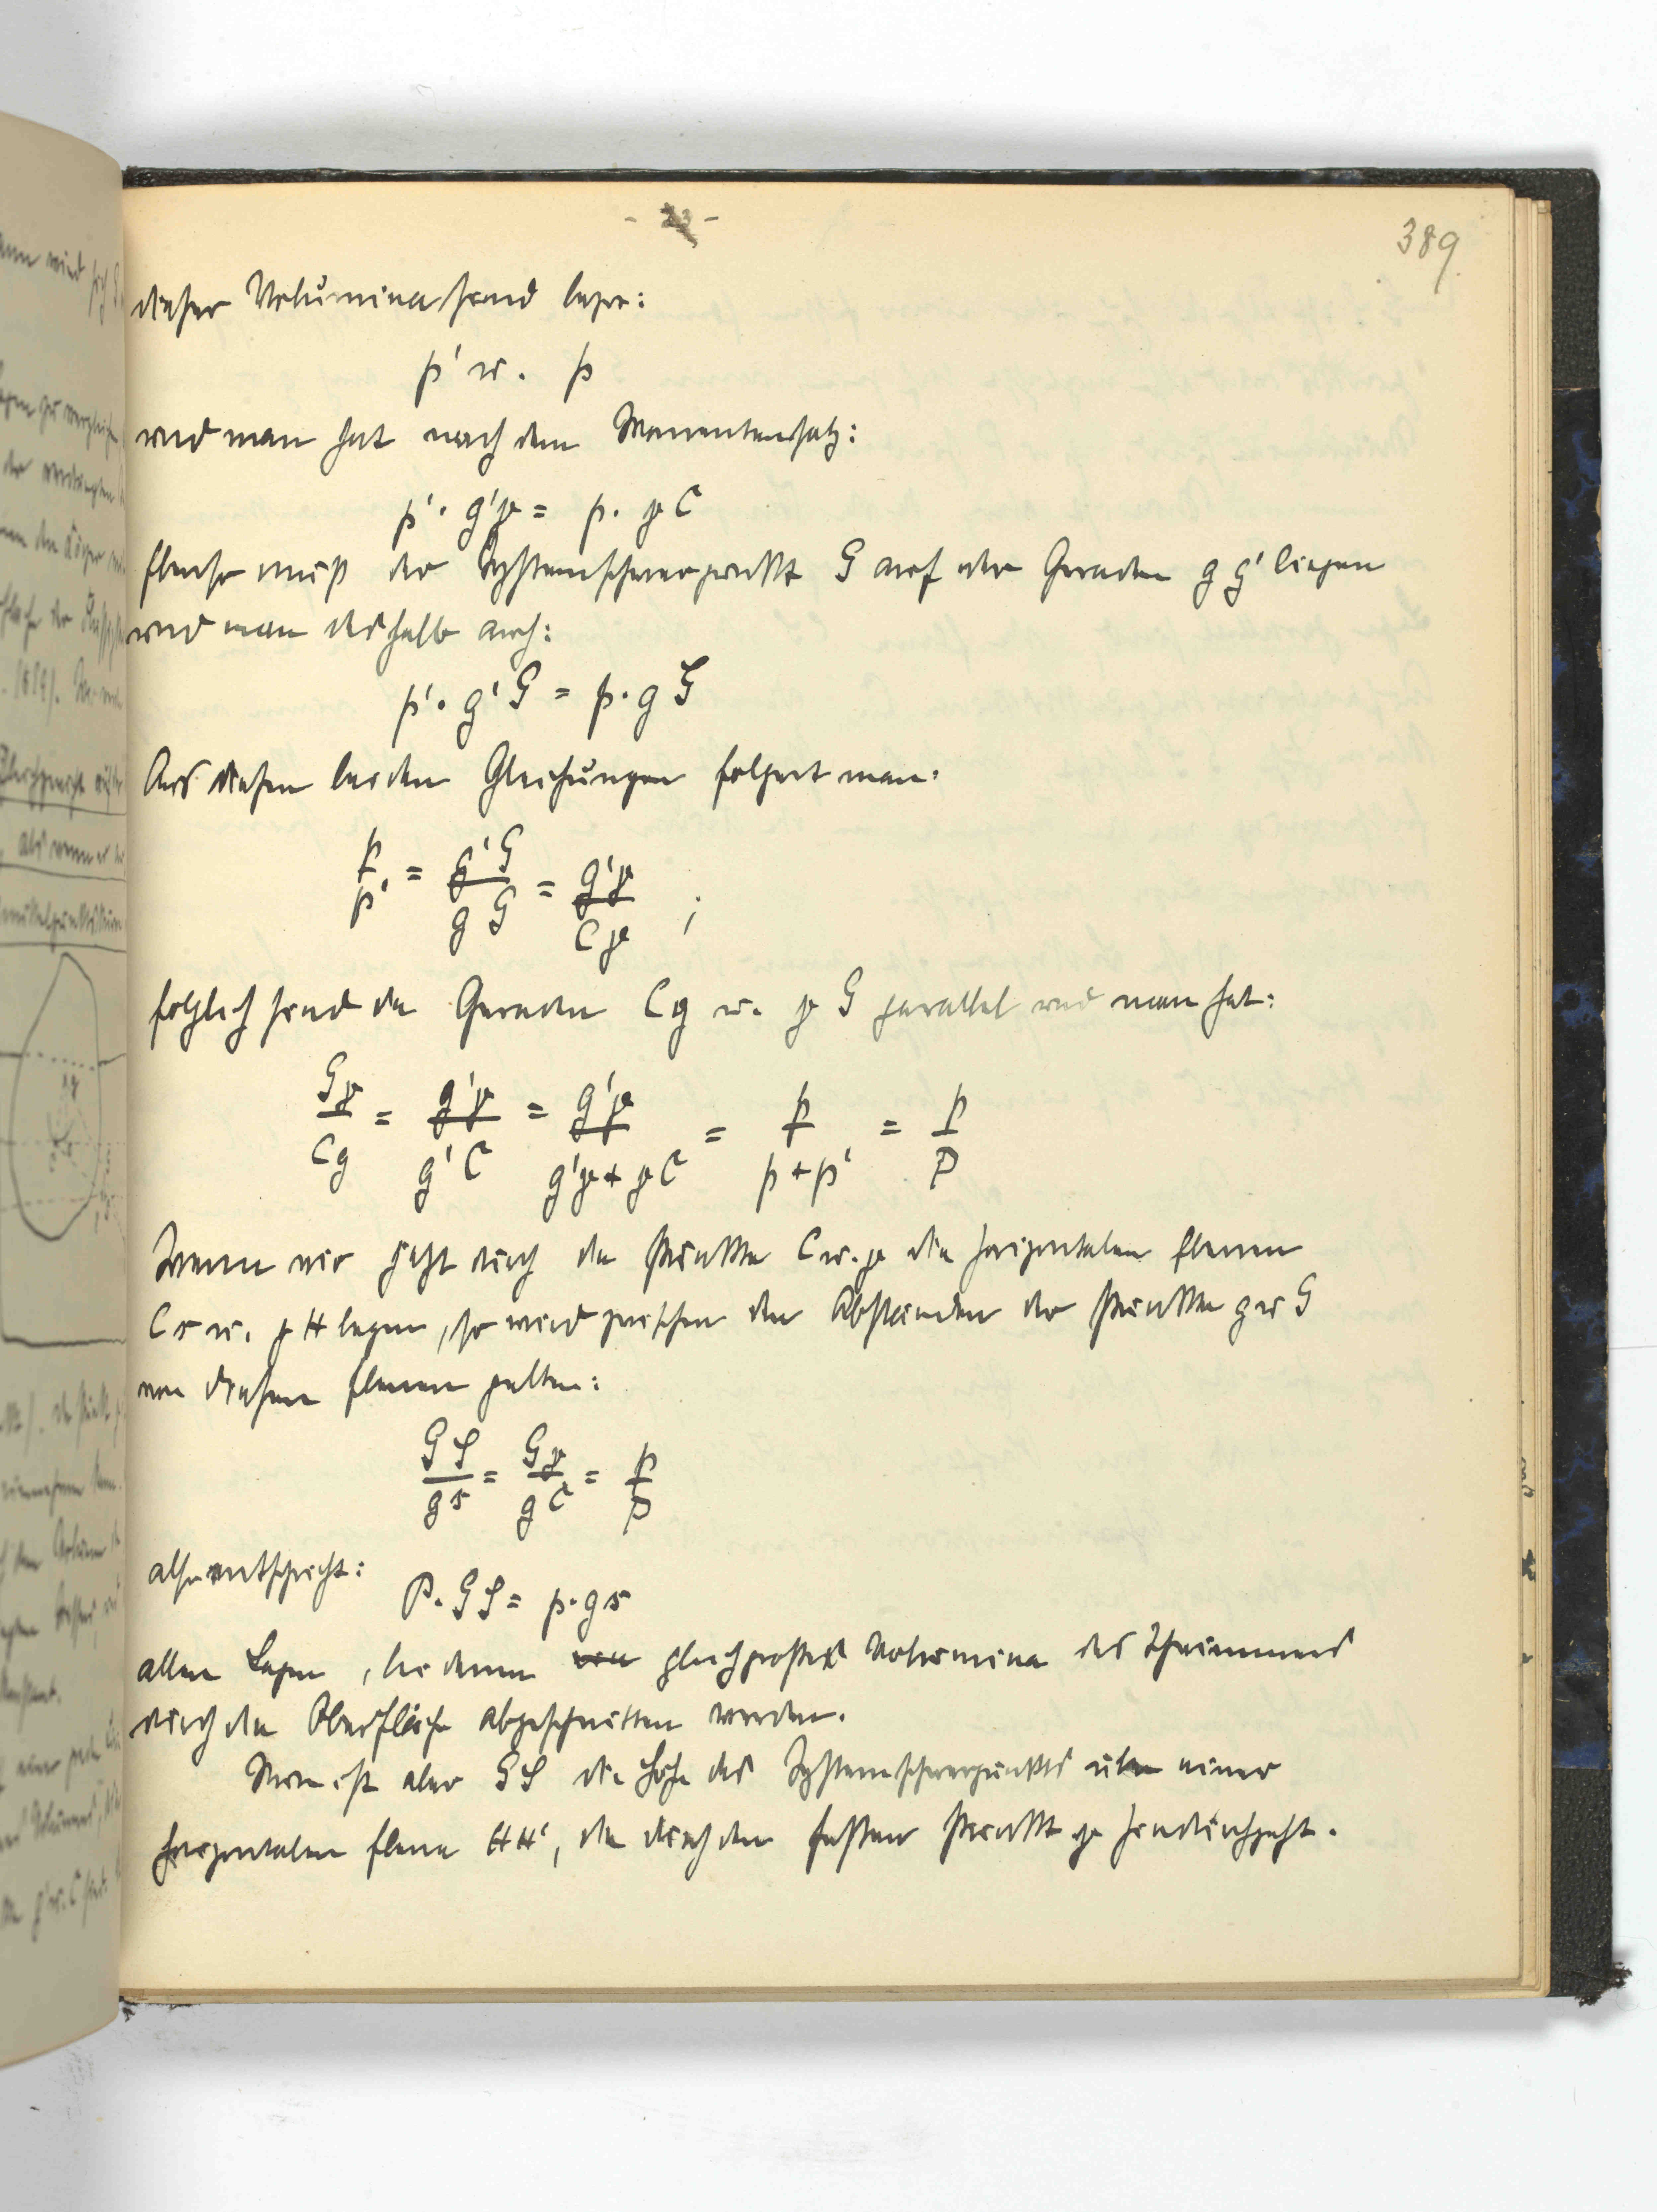 - 23 -
389
dieser Volumina sind bezw:
p' u. p
und man hat nach dem Momentensatz:
p'. g'γ = p. γC
Ebenso muß der Systemschwerpunkt G auf der Geraden g g' liegen
und man deshalb auch:
p'. g'G = p. gG
Aus diesen beiden Gleichungen folgert man:
p/p' = g'G/gG = g'γ/Cγ ;
folglich sind die Geraden Cg u. γG parallel und man hat:
Gγ/Cg = g'γ/g'C = g'γ/g'γ+γC = p/p+p' = p/P
Wenn wir jetzt durch die Punkte C u. γ die horizontalen Ebenen
Cs u. γH legen, so wird zwischen den Abständen der Punkte g u G
von diesen Ebenen gelten:
GS/gs = Gγ/gC = p/P
also entspricht:
P. GS = p. gs
allen Lagen, bei denen von gleichgroße Volumina des Schwimmers
durch die Oberfläche abgeschnitten werden.
Nun ist aber GS die Höhe des Systemschwerpunkts über einer
horizontalen Ebene HH', die durch den festen Punkt γ hindurchgeht.